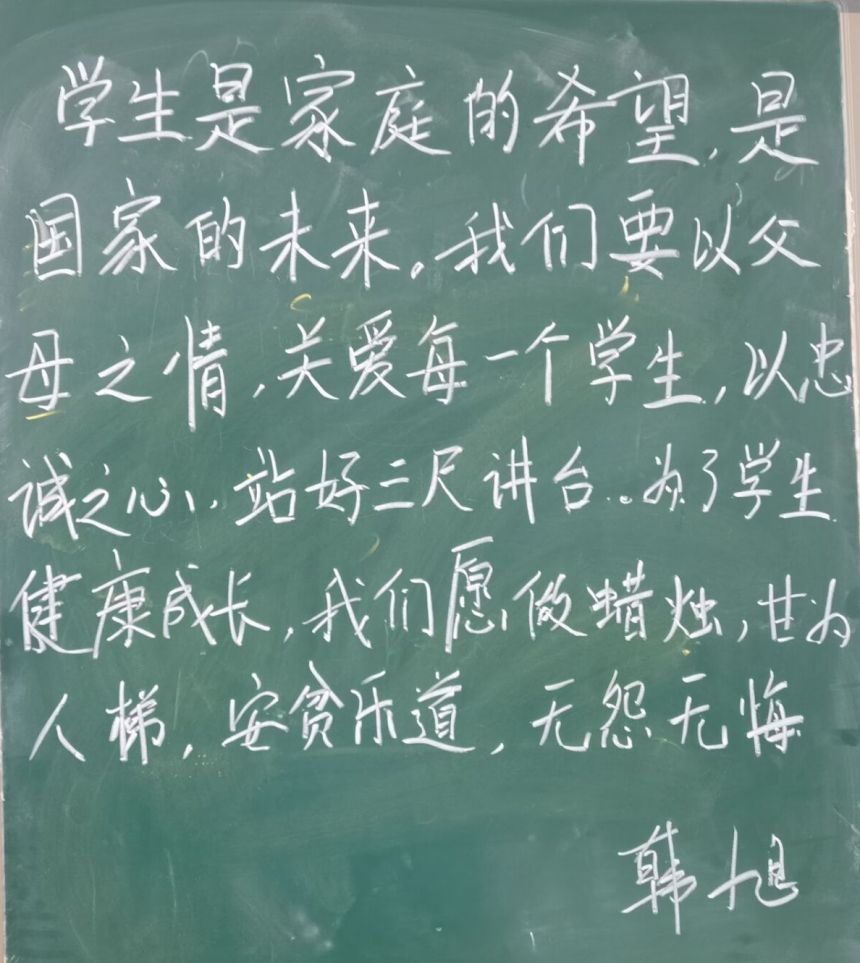 学生是家庭的希望,是
国家的未来。我们要以父
母之情,关爱每一个学生,以忠
诚之心,站好三尺讲台。为了学生
健康成长,我们愿做蜡烛,甘为
人梯,安贫乐道,无怨无悔
韩旭